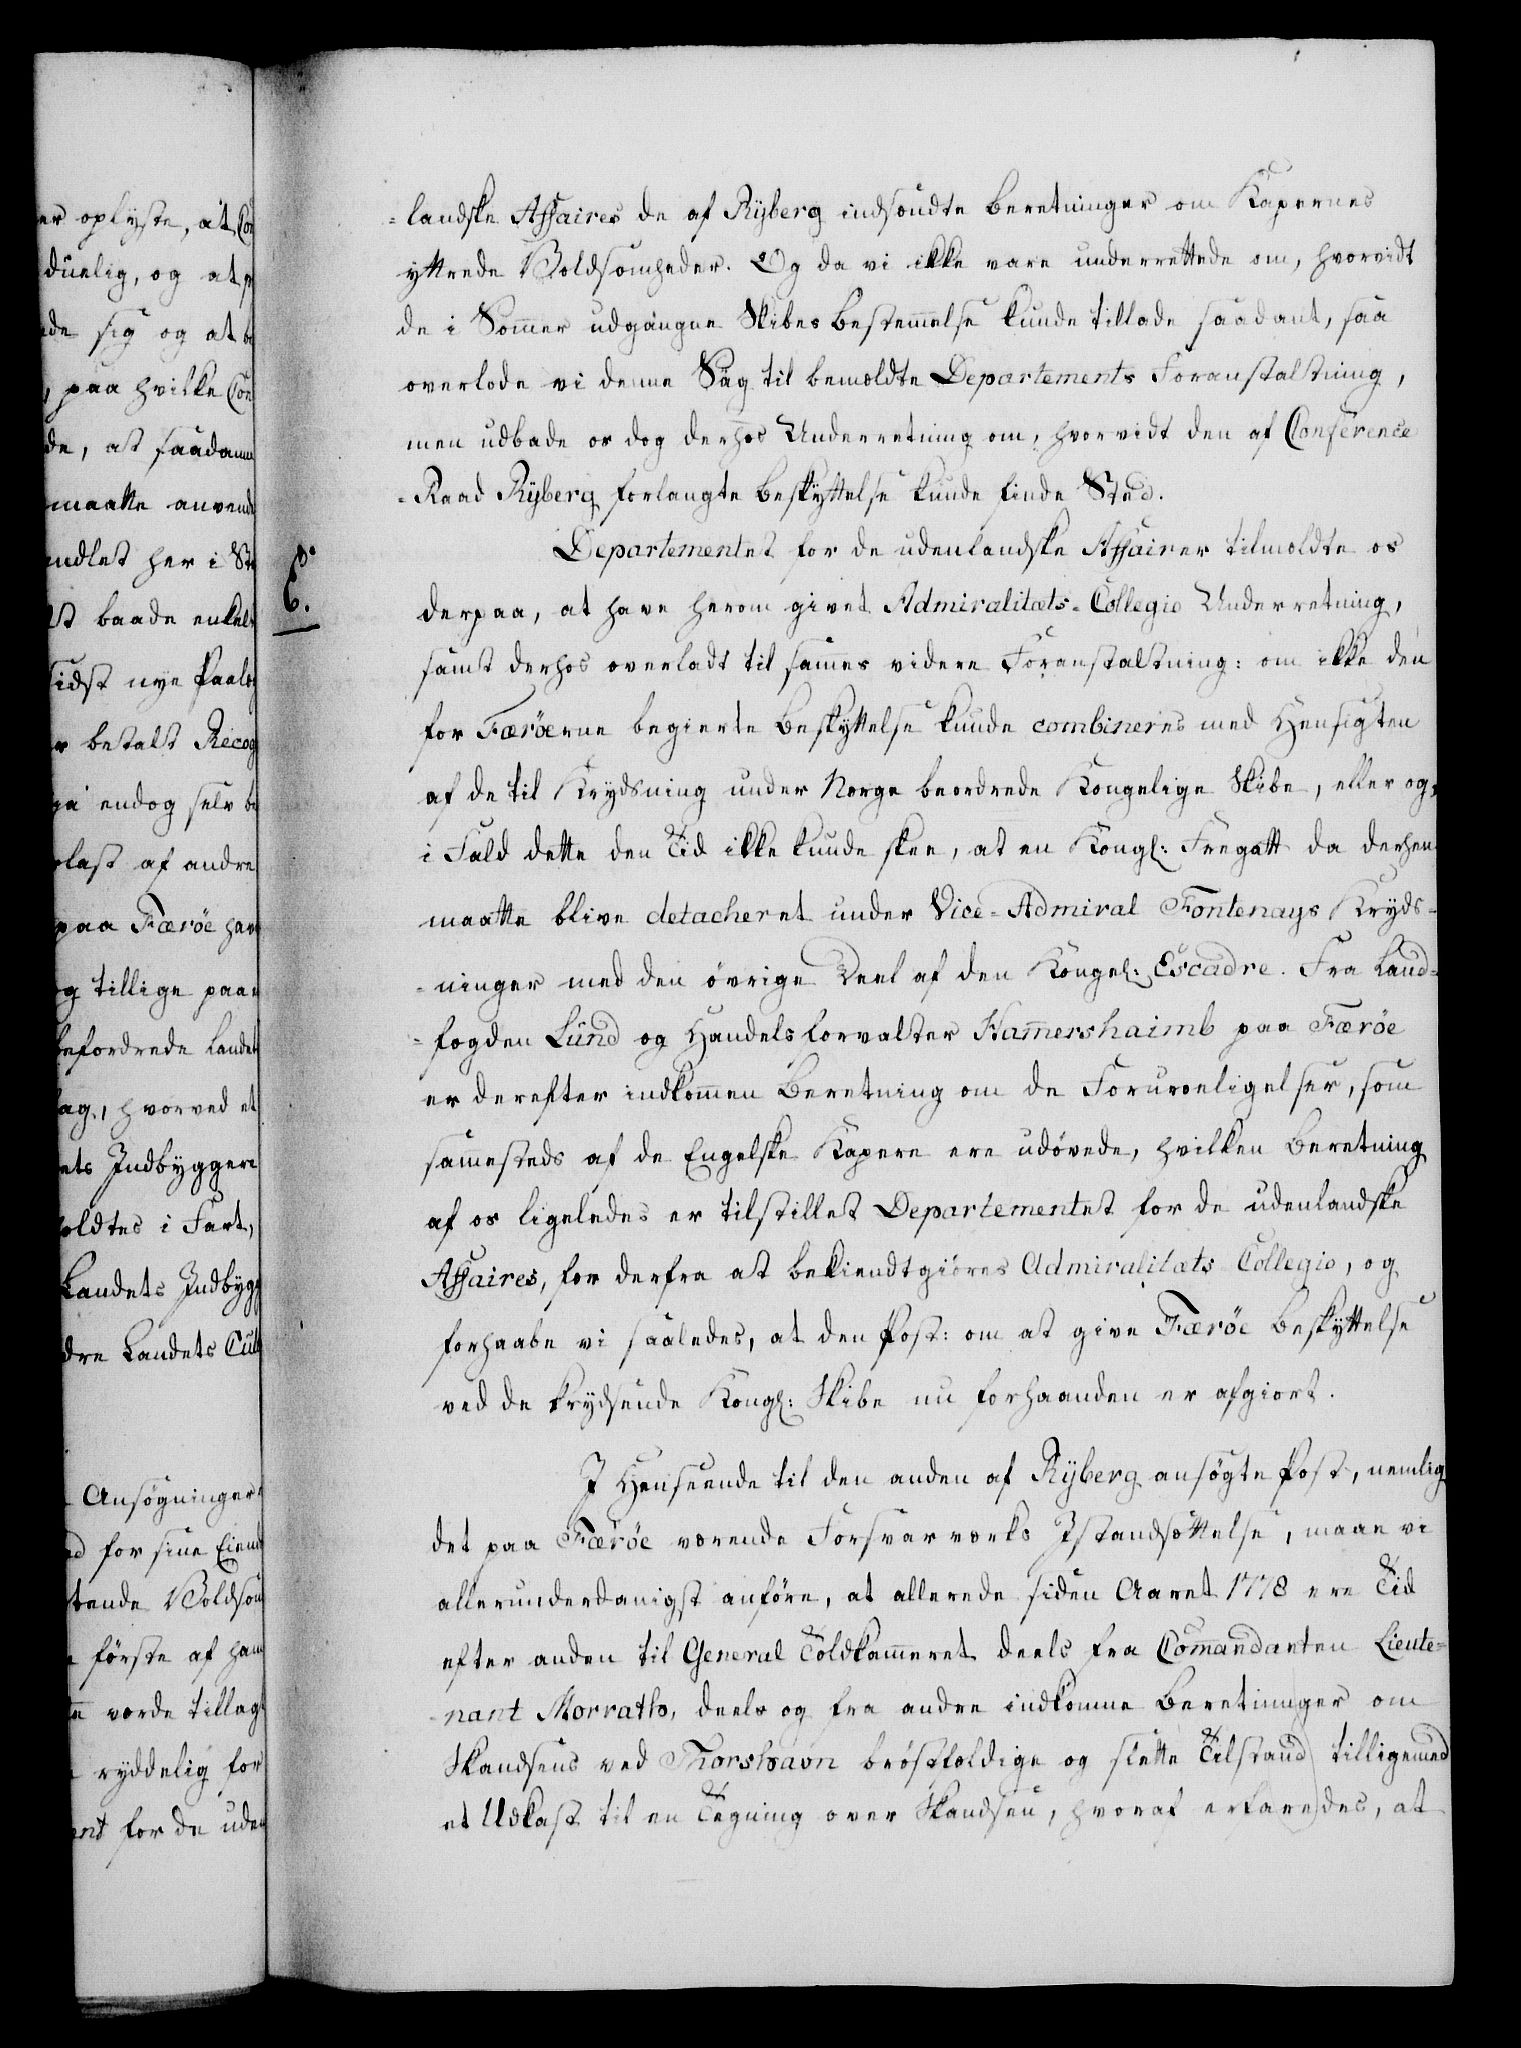 er oplyste, at Con
duelig, og at
de sig og at
paa hvilke Con
de, at saadanne
maatte anvende
ndlet her i St
st baade enkel
sidst nye Paalæg
r betalt Recog
endog selv be
last af andre
paa Færöe hav
og tillige paa
befordrede Landet
ag, hvorved et
ets Indbyggere
oldtes i Fart,
Landets Indbygg
dre Landets Cult
Ansøgninger
d for sine Eiend
tende Voldsom
förste af ham
vorde tillagt
ryddelig for
ent for de uden
=landske Affaires de af Ryberg indsendte Beretninger om Kapernes
yttrede Voldsomheder. Og da vi ikke vare underrettede om, hvorvidt
de i Sommer udgangne Skibes Bestemmelse kunde tillade saadant, saa
overlode vi denne Sag til bemeldte Departements Foranstaltning,
men udbade os dog derhos Underretning om, hvorvidt den af Conference
=Raad Ryberg forlangte Beskyttelse kunde finde Sted.
6.
Departementet for de udenlandske Affairer tilmeldte os
derpaa, at have herom givet Admiralitæts-Collegio Underretning,
samt derhos overladt til sammes videre Foranstaltning: om ikke den
for Færöerne begierte Beskyttelse kunde combineres med Hensigten
af de til Krydsning under Norge beordrede Kongelige Skibe, eller og,
i Fald dette den Tid ikke kunde skee, at en Kongl: Fregatt da derhen
maatte blive detacheret under Vice-Admiral Fontenays Kryds=
=ninger med den övrige Deel af den Kongel: Escadre. Fra Land=
=fogden Lund og Handelsforvalter Hammershaimb paa Færöe
er derefter indkommen Beretning om de Foruroeligelser, som
sammesteds af de Engelske Kapere ere udövede, hvilken Beretning
af os ligeledes er tilstillet Departementet for de udenlandske
Affaires, for derfra at bekiendtgiöres Admiralitæts Collegio, og
forhaabe vi saaledes, at den Post: om at give Færöe Beskyttelse
ved de krydsende Kongl: Skibe nu forhaanden er afgiort.
I Henseende til den anden af Ryberg ansögte Post, nemlig
det paa Færöe værende Forsvarværks Istandsættelse, maae vi
allerunderdanigst anföre, at allerede siden Aaret 1778 ere Tid
efter anden til General Toldkammeret deels fra Commandanten Lieute=
=nant Morrath, deels og fra andre indkomne Beretninger om
Skandsens ved Thorshavn bröstfældige og slette Tilstand tilligemed
et Udkast til en Tegning over Skandsen, hvoraf erfaredes, at